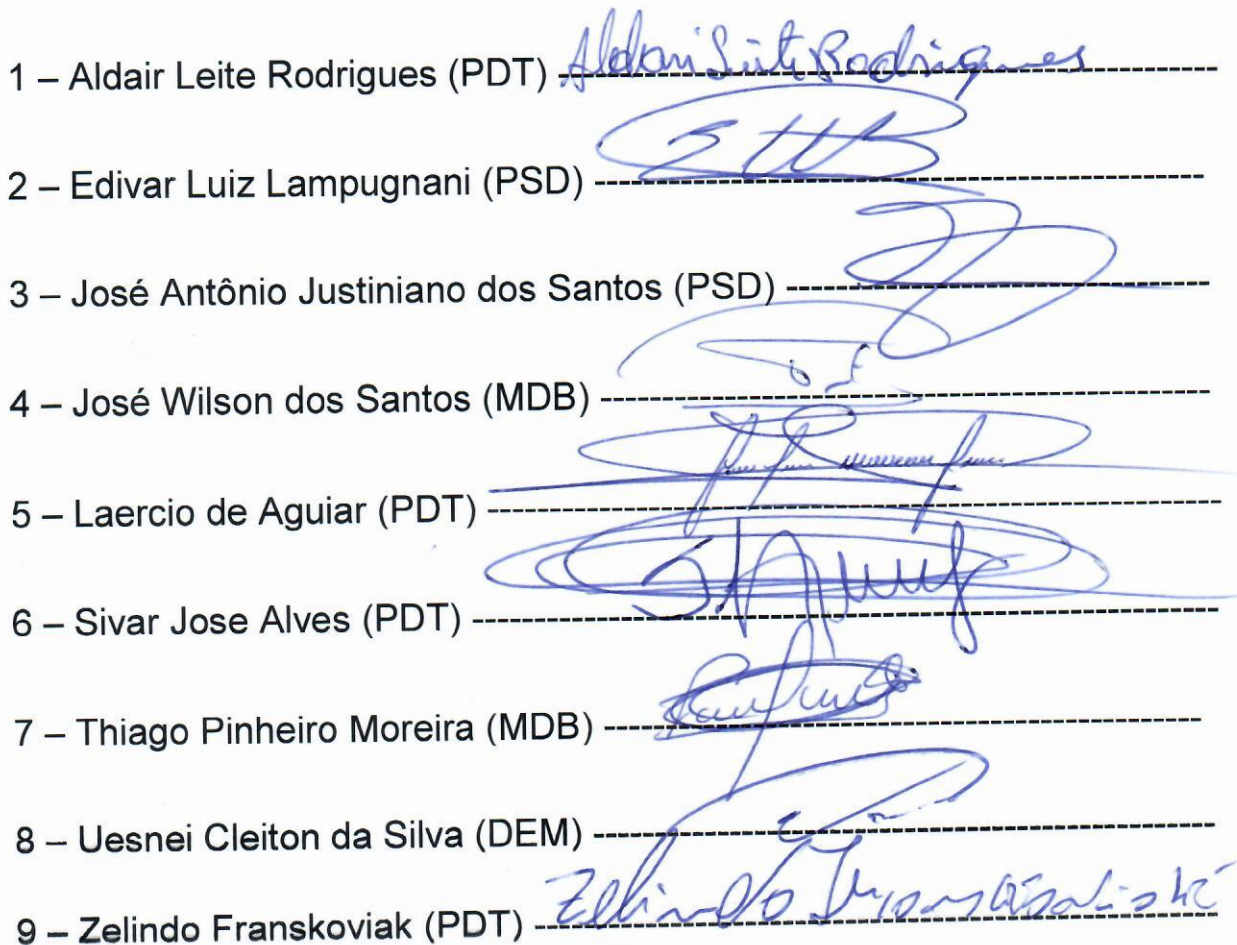 1 – Aldair Leite Rodrigues (PDT) Aldair Leite Rodrigues
2 – Edivar Luiz Lampugnani (PSD)
3 – José Antônio Justiniano dos Santos (PSD)
4 – José Wilson dos Santos (MDB)
5 – Laercio de Aguiar (PDT)
6 – Sivar Jose Alves (PDT)
7 – Thiago Pinheiro Moreira (MDB)
8 – Uesnei Cleiton da Silva (DEM)
9 – Zelindo Franskoviak (PDT) Zelindo